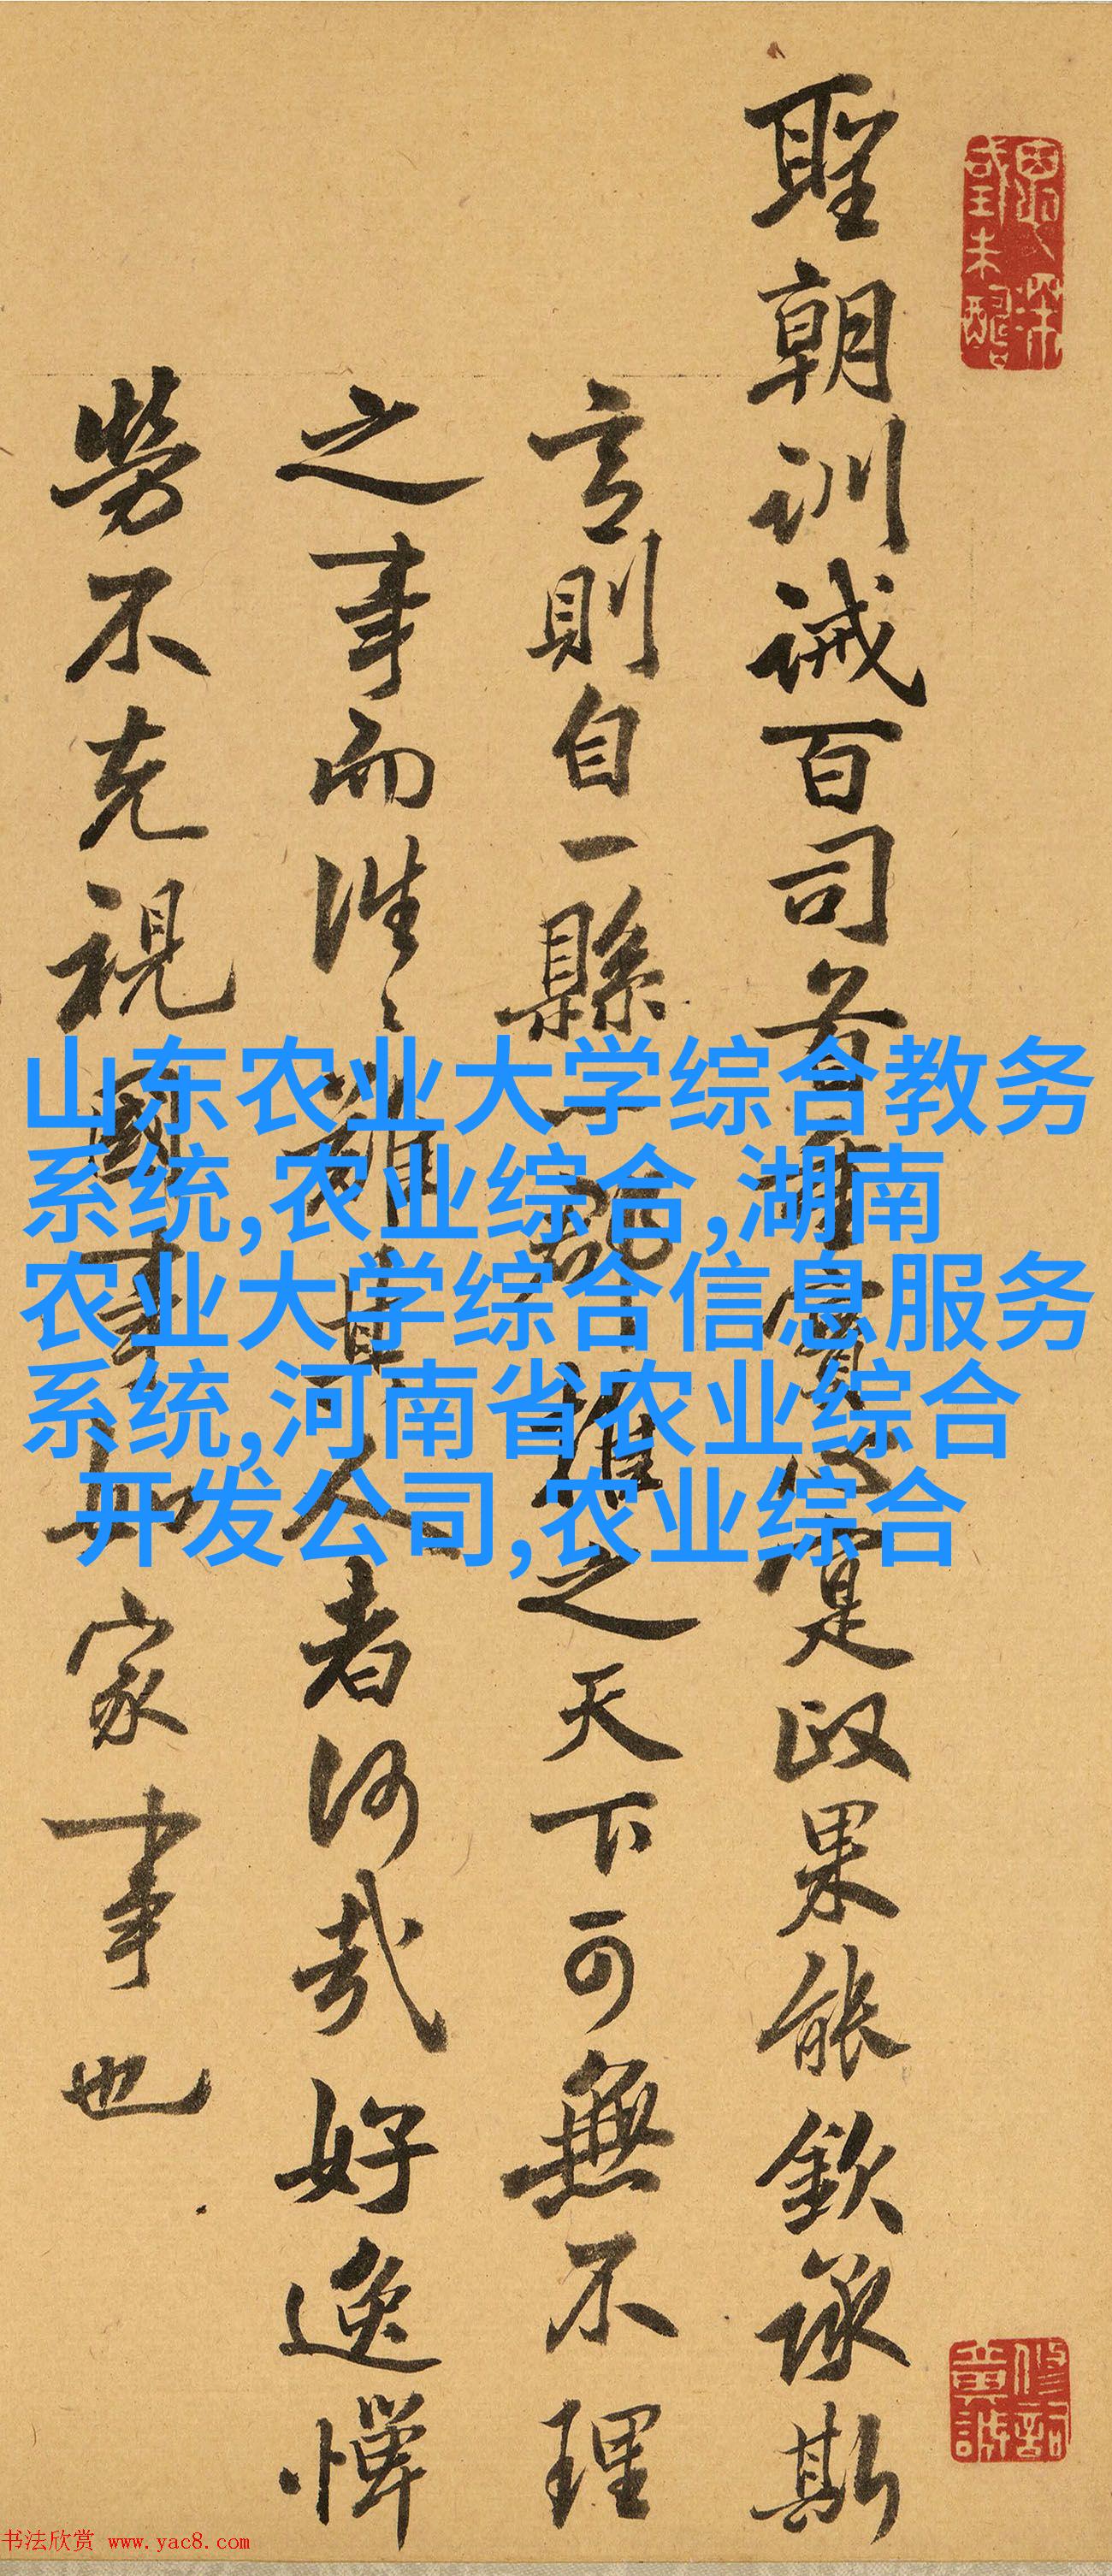 聖朝訓誡百司首重實心實政果能欽承斯
言則自一縣一郡推之天下可無不理
之事而往々難其人者何哉好逸憚
勞不克視國事如家事也
山东农业大学综合教务
系统,农业综合,湖南
农业大学综合信息服务
系统,河南省农业综合
开发公司,农业综合
书法欣赏 www.yac8.com